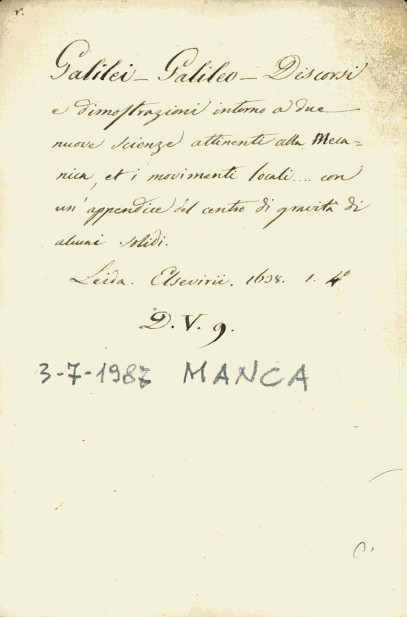 Galilei - Galileo - Discorsi
e dimostrazioni intorno a due
nuove scienze attinenti alla Meca=
nica, et i movimenti locali.... con
un' appendice del centro di gravità di
alcuni solidi.
Leida. Elsevirii. 1638. 1. 4°
D. V. 9.
3-7-1987 MANCA